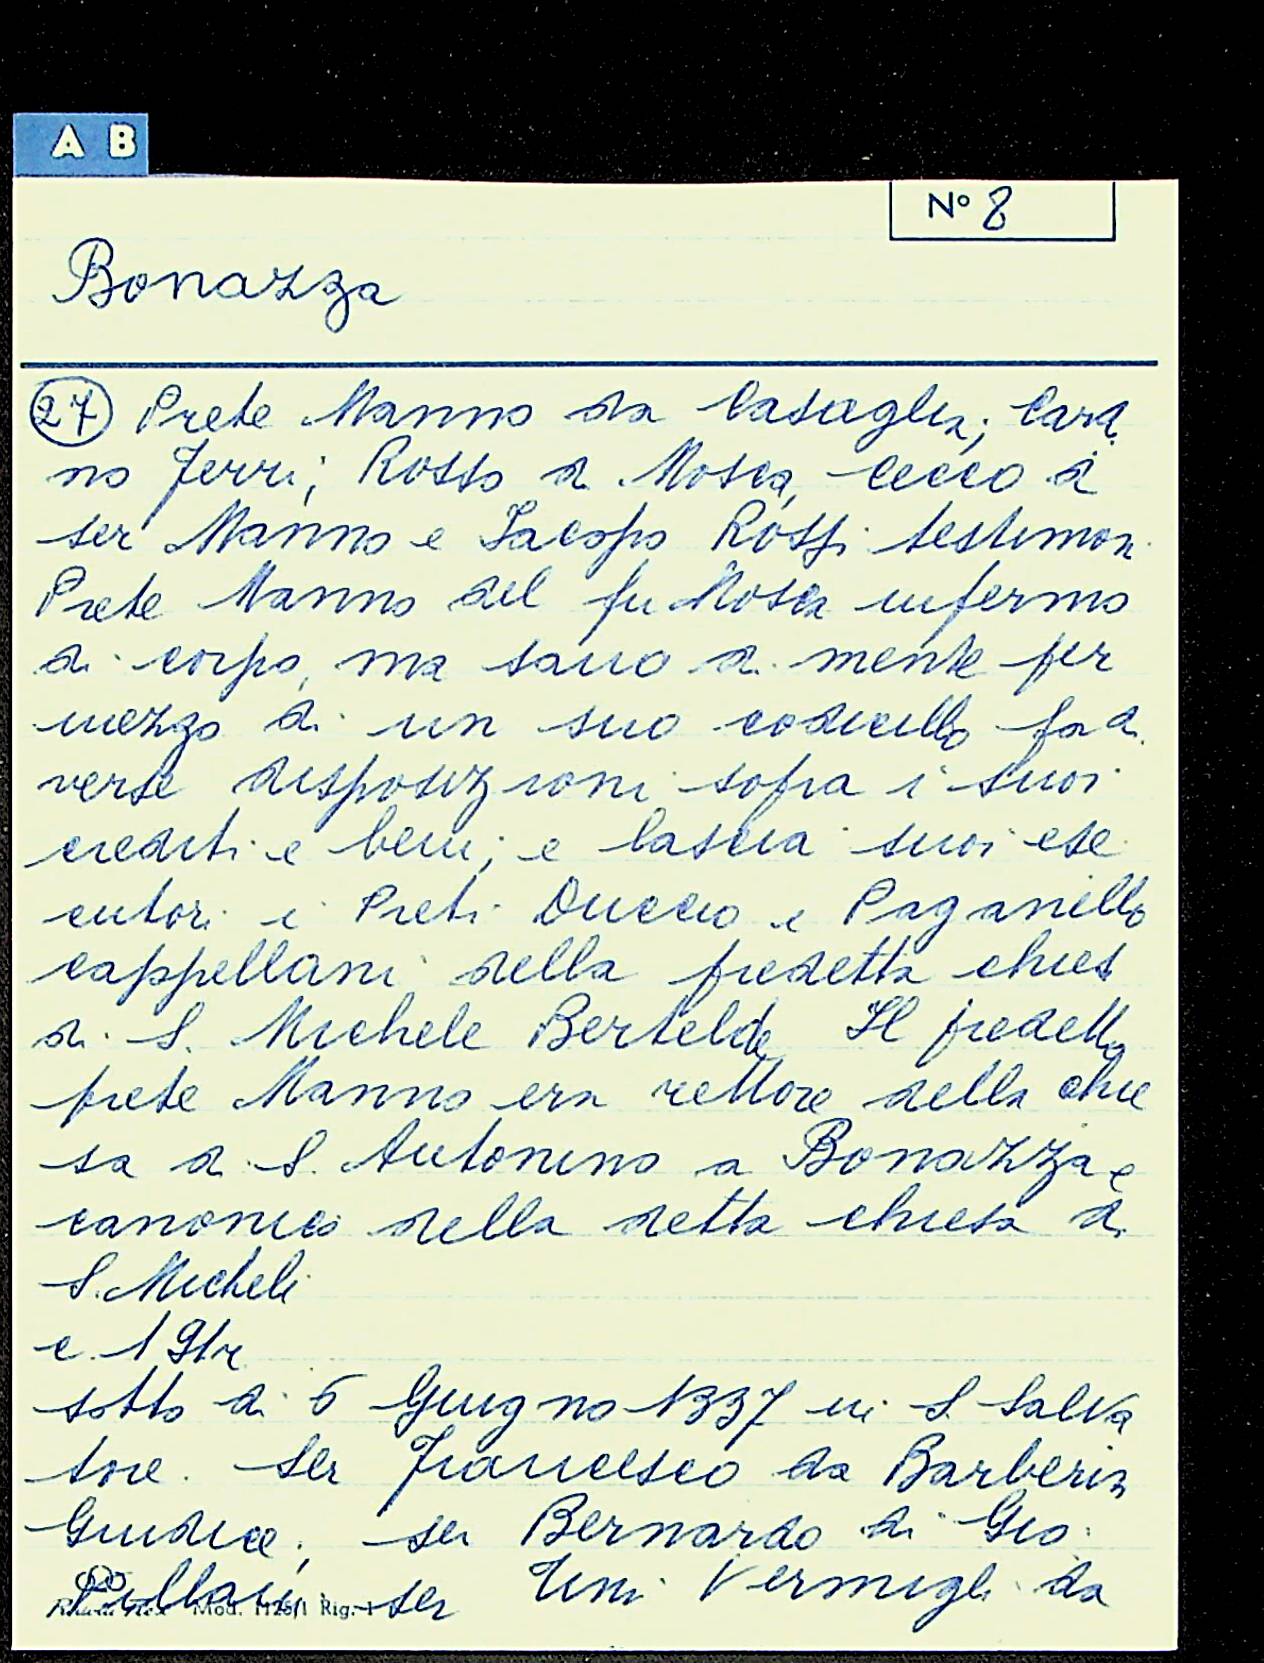 A B
Nº 8
Bonazza
27 Prete Manno da Casaglia; Card.
no Ferri; Rosso di Mosca, Cecco di
ser Manno e Iacopo Rossi testimon.
Prete Manno del fu Mosca infermo
di corpo, ma sano di mente per
mezzo di un suo codicillo fa di
verse disposizioni sopra i suoi
crediti e beni; e lascia suoi ese
cutori i Preti Duccio e Paganello
cappellani della predetta chiesa
di S. Michele Bertelde Il predetto
prete Manno era rettore della chie
sa di S. Antonino a Bonazza e
canonico della detta chiesa di
S. Michele
e. 1 91r
sotto di 5 Giugno 1337 in S. Salva
tore. Ser Francesco da Barberin
Giudice; ser Bernardo di Gio.
ser Tini Vermigli da
Mod. 1126/1 Rig. 1